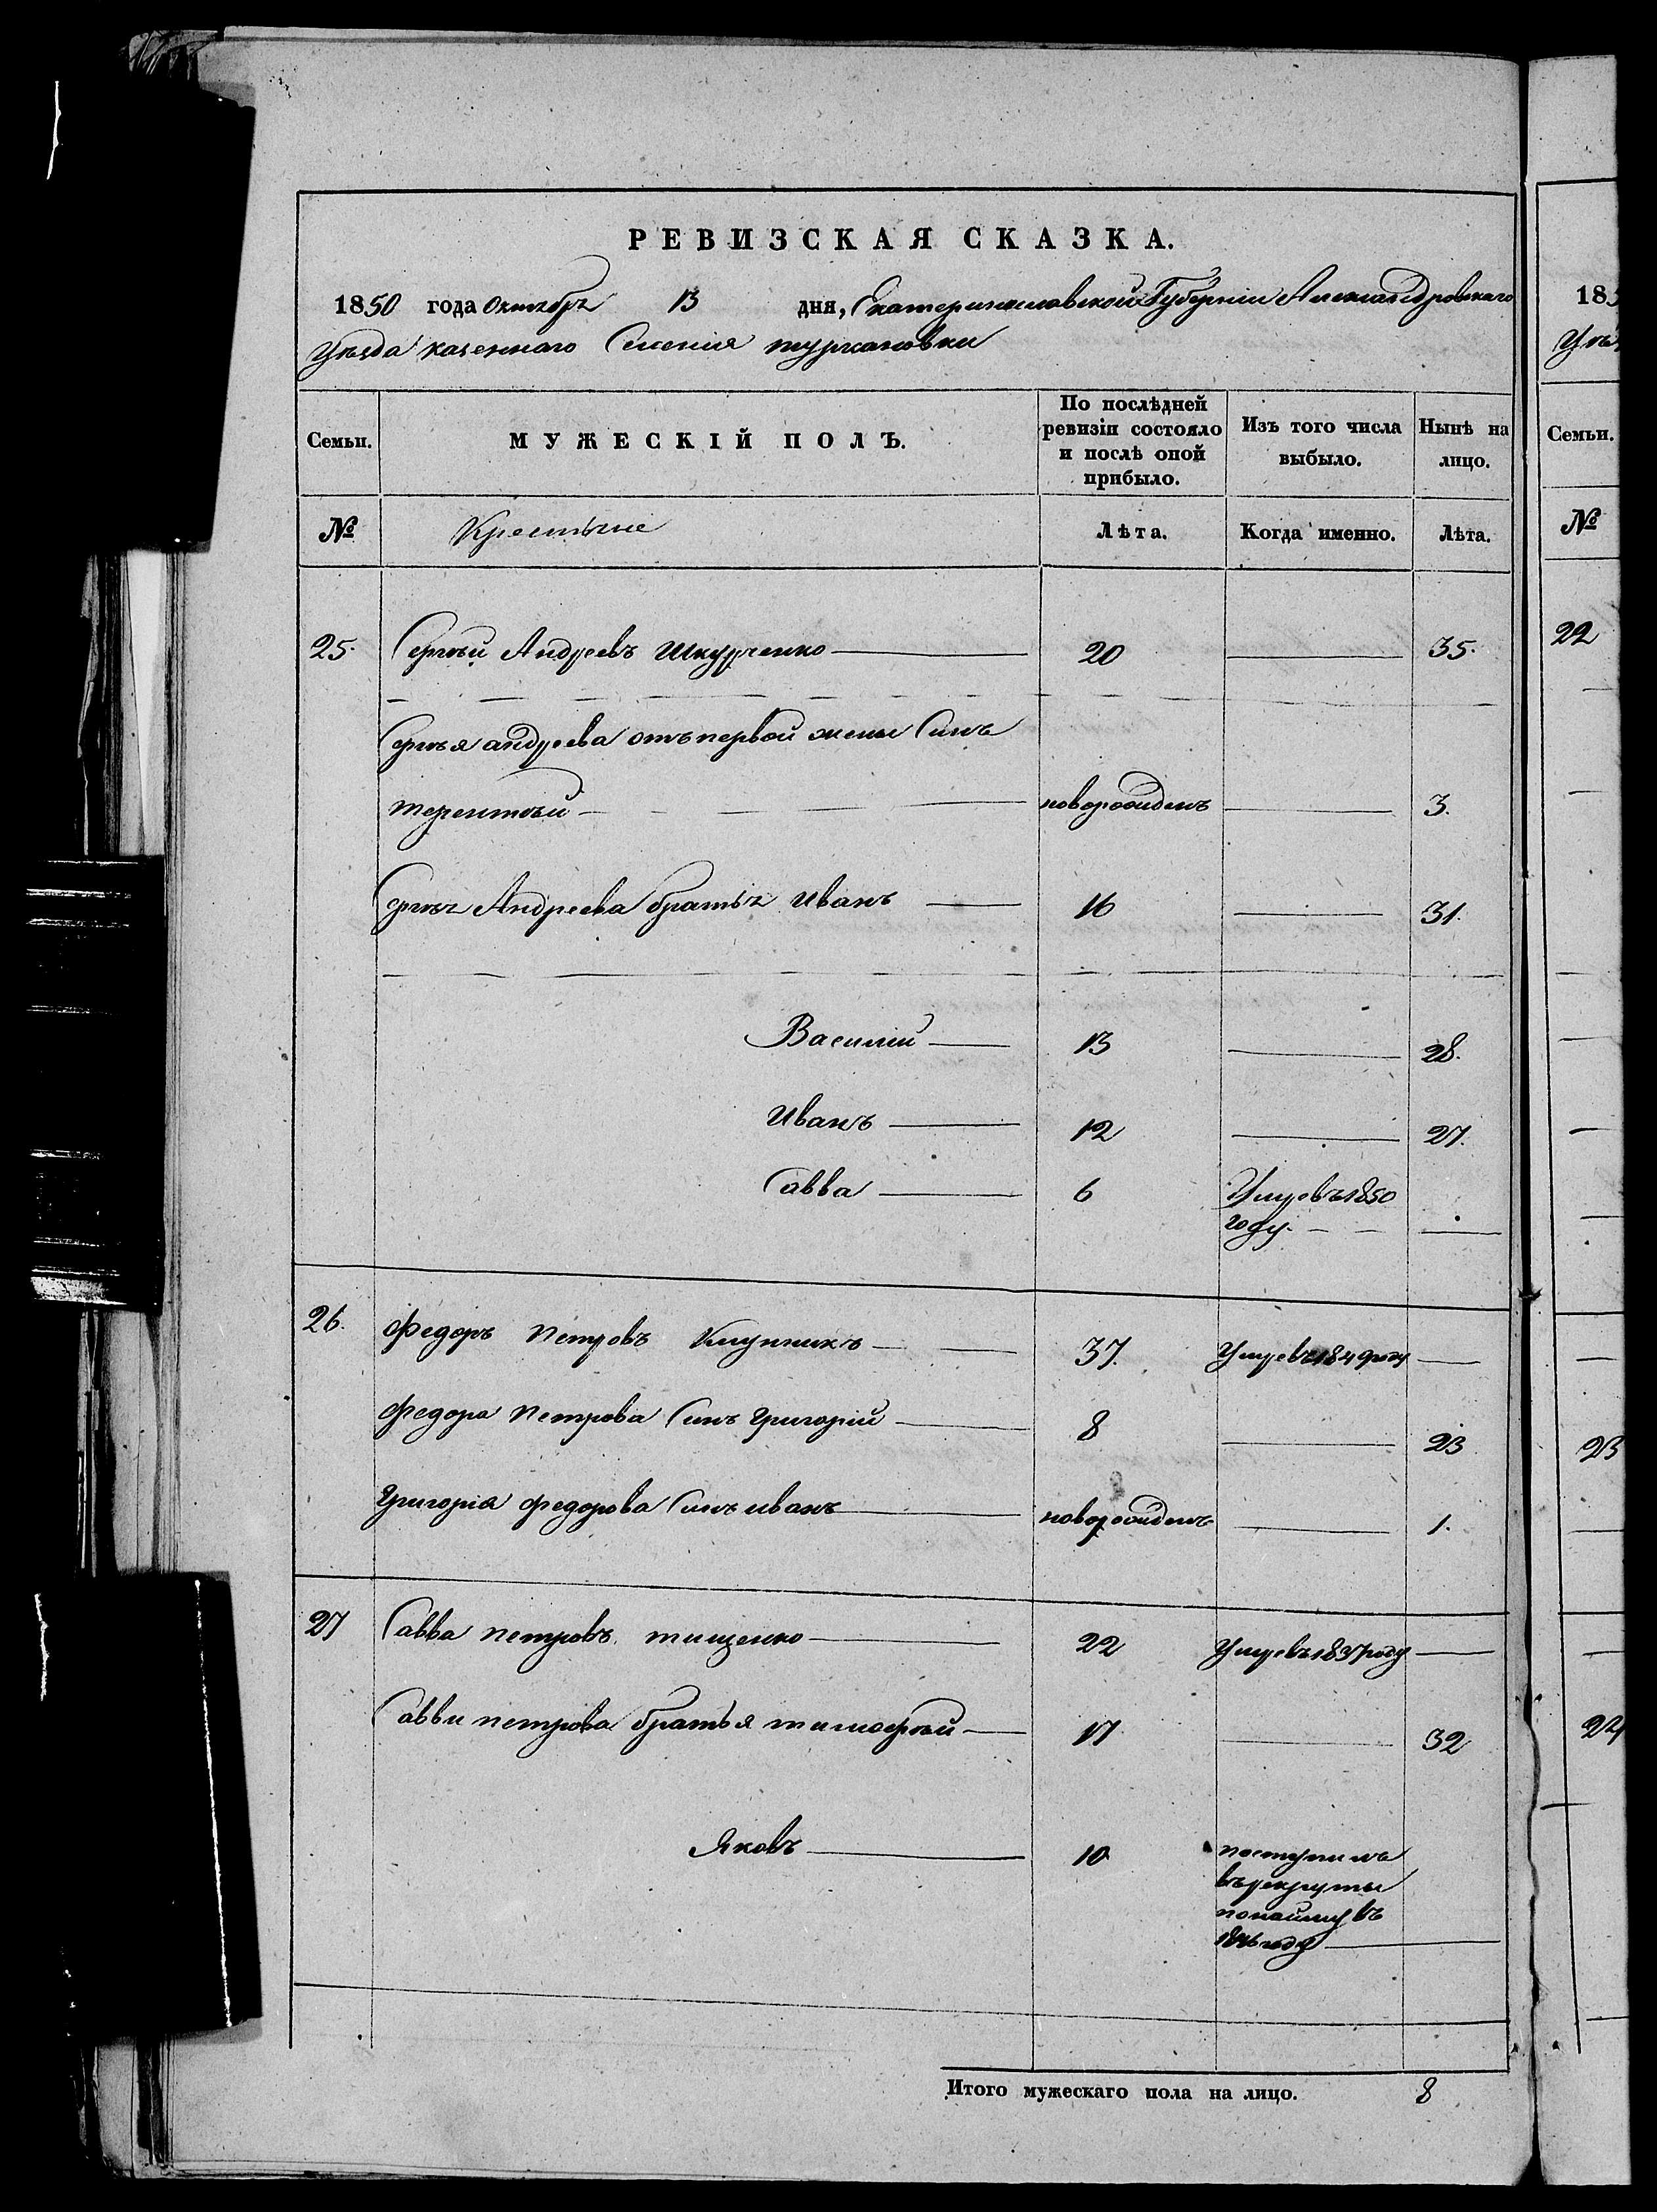 РЕВИЗСКАЯ СКАЗКА.
1850 года Октября 13 дня, Екатеринославской Губерніи Александровскаго
Уѣзда казеннаго Селенія туркановки
Семьи. МУЖЕСКІЙ ПОЛЪ. По послѣдней ревизіи состояло и послѣ оной прибыло. Изъ того числа выбыло. Нынѣ на лицо.
№ Крестьяне Лѣта. Когда именно. Лѣта.
25. Сергѣй Андреевъ Шкурченко 20 35.
Сергѣя андреева отъ первой жены Сынъ
терентѣй новорожденъ 3.
Сергѣя Андреева братья Иванъ 16 31.
Василій 13 28.
Иванъ 12 27.
Савва 6 Умре въ 1850
году.
26. Федоръ Петровъ 37. Умре въ 1849 году
Федора Петрова Сынъ Григорій 8 23
Григорія федорова Сынъ иванъ новорожденъ 1.
27 Савва петровъ тищенко 22 Умре въ 1837 году
Саввы петрова братья тимофѣй 17 32
Яковъ 10 поступилъ
въ рекруты
по найму въ
1846 году
Итого мужескаго пола на лицо. 8
185
Уѣз
Семьи.
№
22
23
24